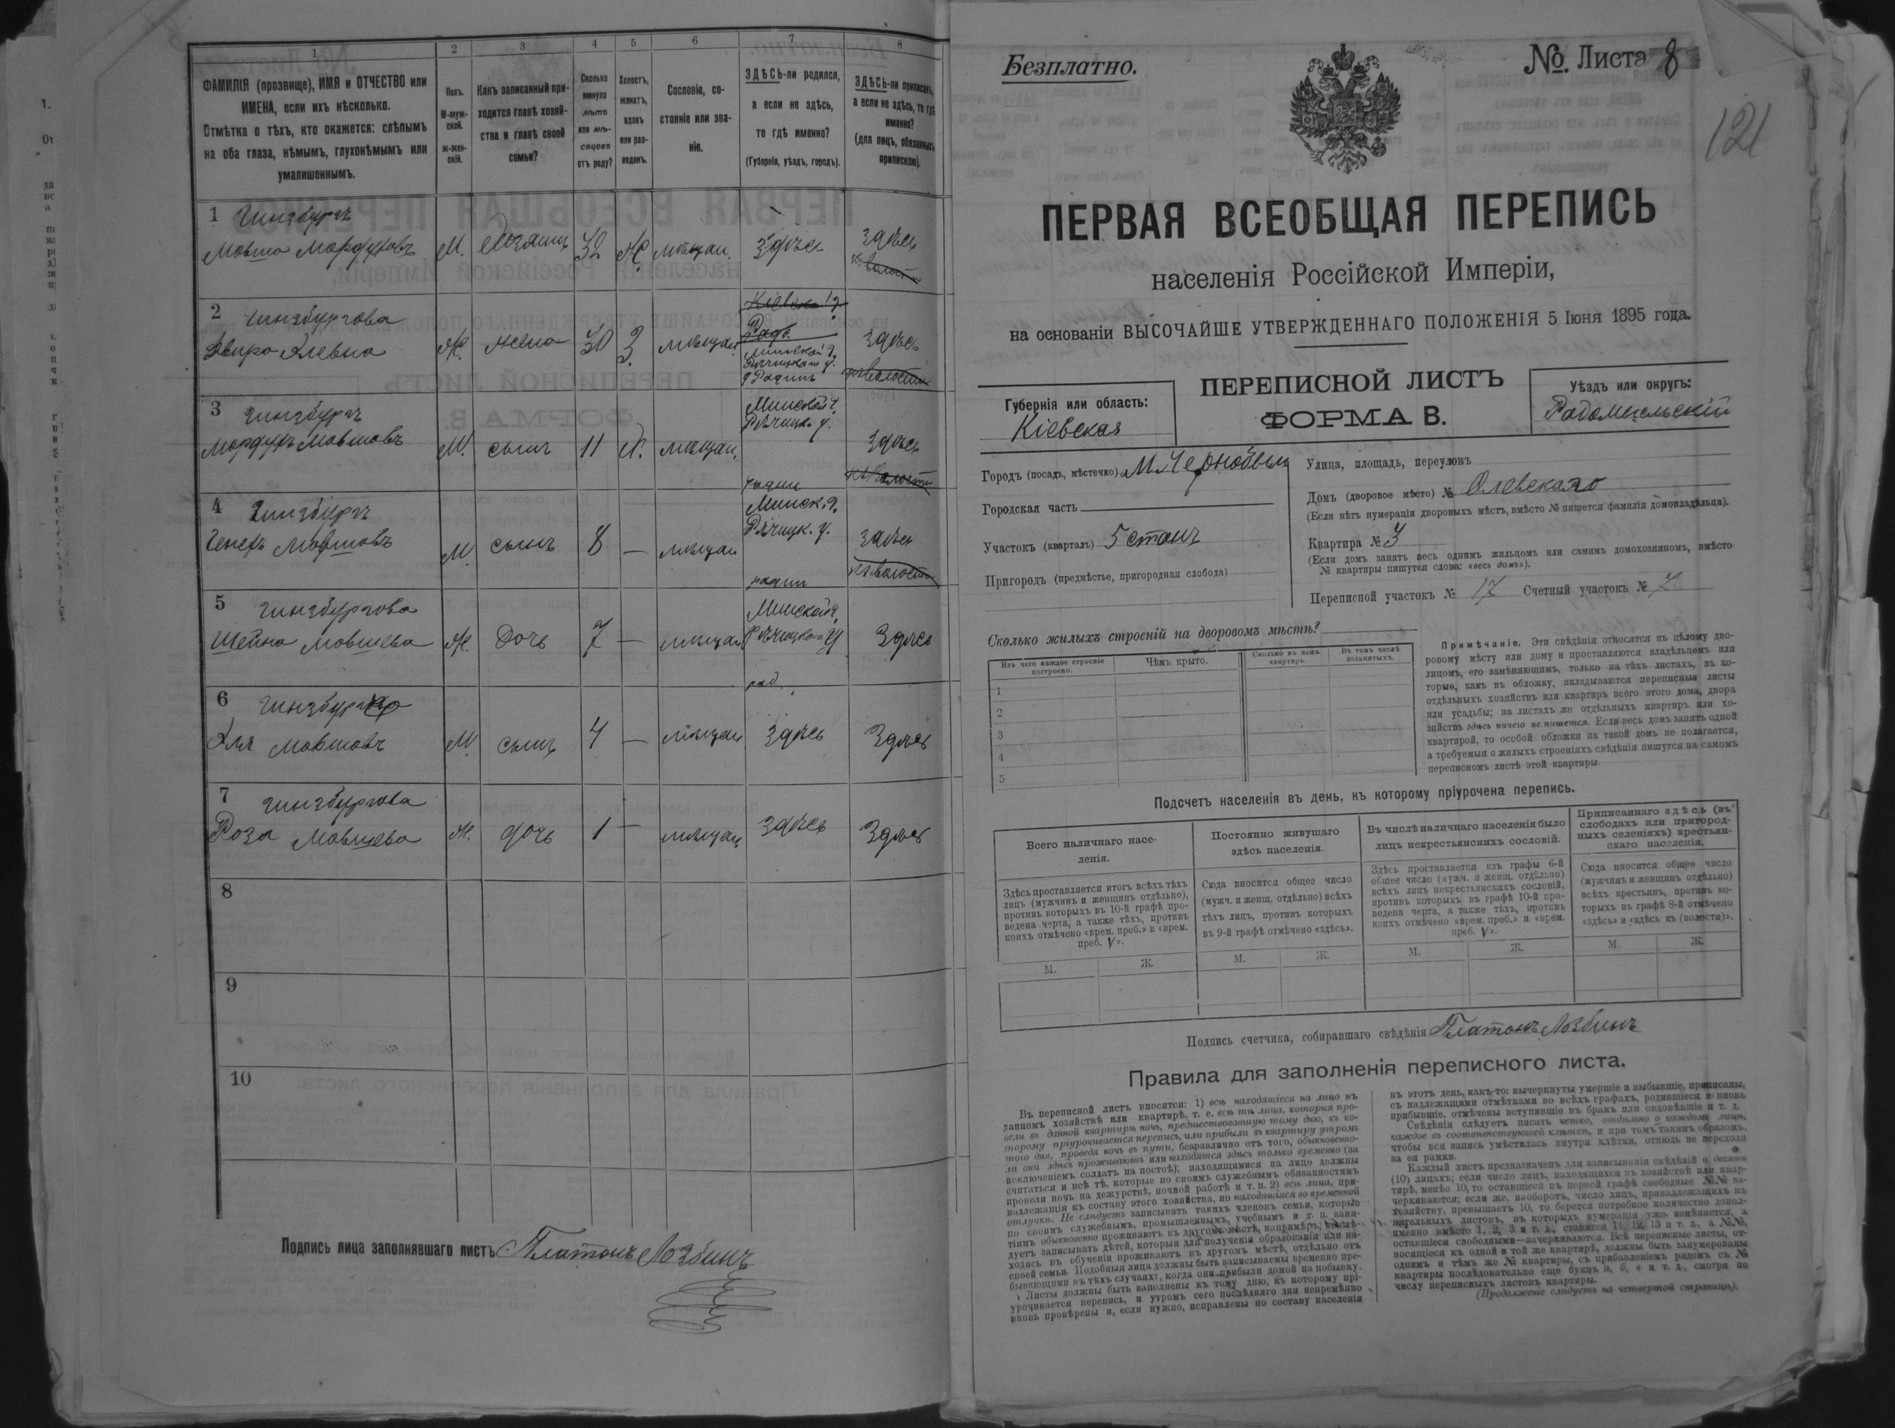 1 2 3 4 5 6 7 8
ФАМИЛІЯ (прозвище), ИМЯ и ОТЧЕСТВО или
ИМЕНА, если ихъ нѣсколько.
Отмѣтка о тѣхъ, кто окажется: слѣпымъ
на оба глаза, нѣмымъ, глухонѣмымъ или
умалишеннымъ.
Полъ.
М-муж-
ской.
ж-жен-
скій.
Какъ записанный при-
ходится главѣ хозяй-
ства и главѣ своей
семьи?
Сколько
минуло
лѣтъ
или мѣ-
сяцевъ
отъ роду?
Холостъ,
женатъ,
вдовъ
или раз-
веденъ.
Сословіе, со-
стояніе или зва-
ніе.
ЗДѢСЬ-ли родился,
а если не здѣсь,
то гдѣ именно?
(Губернія, уѣздъ, городъ).
ЗДѢСЬ-ли приписанъ,
а если не здѣсь, то гдѣ
именно?
(для лицъ, обязанныхъ
припискою).
1 Гинзбургъ
Мовша Мордуховъ М. 32 Ж. мѣщан. здѣсь здѣсь
2 Гинзбургова
Ж. жена 30 З. мѣщан. Минской г. Рѣчицкаго у. здѣсь
3 Гинзбургъ
Мордухъ Мовшовъ М. сынъ 11 мѣщан. Минской г. Рѣчицк. у. здѣсь
4 Гинзбургъ
Мовшовъ М. сынъ 8 — мѣщан Минск. г. Рѣчицк. у. здѣсь
5 Гинзбургова
Шейна Мовшева Ж. дочь 7 — мѣщан Минской г. Рѣчицкаго у. Здѣсь
6 Гинзбургъ
Мовшовъ М. сынъ 4 — мѣщан Здѣсь Здѣсь
7 Гинзбургова
Роза Мовшева Ж. дочь 1 — мѣщан Здѣсь Здѣсь
8
9
10
Подпись лица заполнявшаго листъ Платонъ Лозбинъ
Безплатно.
№ Листа 8
121
ПЕРВАЯ ВСЕОБЩАЯ ПЕРЕПИСЬ
населенія Россійской Имперіи,
на основаніи ВЫСОЧАЙШЕ УТВЕРЖДЕННАГО ПОЛОЖЕНІЯ 5 Іюня 1895 года.
Губернія или область:
Кіевская
ПЕРЕПИСНОЙ ЛИСТЪ
ФОРМА В.
Уѣздъ или округъ:
Радомысльскій
Городъ (посадъ, мѣстечко) М. Чернобыль
Городская часть
Участокъ (кварталъ) 5 станъ
Пригородъ (предмѣстье, пригородная слобода)
Улица, площадь, переулокъ
Домъ (дворовое мѣсто) № Олевскаго
(Если нѣтъ нумераціи дворовыхъ мѣстъ, вмѣсто № пишется фамилія домовладѣльца).
Квартира № 3
(Если домъ занятъ весь однимъ жильцомъ или самимъ домохозяиномъ, вмѣсто
№ квартиры пишутся слова: «весь домъ»).
Переписной участокъ № 17 Счетный участокъ № 7
Сколько жилыхъ строеній на дворовомъ мѣстѣ?
Изъ чего каждое строеніе
построено.
Чѣмъ крыто.
Сколько въ немъ
квартиръ.
Въ томъ числѣ
незанятыхъ.
1
2
3
4
5
Примѣчаніе. Эти свѣдѣнія относятся къ цѣлому дво-
ровому мѣсту или дому и проставляются владѣльцемъ или
лицомъ, его замѣняющимъ, только на тѣхъ листахъ, въ ко-
торые, какъ въ обложку, вкладываются переписные листы
отдѣльныхъ хозяйствъ или квартиръ всего этого дома, двора
или усадьбы; на листахъ же отдѣльныхъ квартиръ или хо-
зяйствъ здѣсь ничего не пишется. Если весь домъ занятъ одной
квартирой, то особой обложки на такой домъ не полагается,
а требуемыя о жилыхъ строеніяхъ свѣдѣнія пишутся на самомъ
переписномъ листѣ этой квартиры.
Подсчетъ населенія въ день, къ которому пріурочена перепись.
Всего наличнаго насе-
ленія.
Здѣсь проставляется итогъ всѣхъ тѣхъ
лицъ (мужчинъ и женщинъ отдѣльно),
противъ которыхъ въ 10-й графѣ про-
ведена черта, а также тѣхъ, противъ
коихъ отмѣчено «врем. преб.» и «врем.
преб. V».
Постоянно живущаго
здѣсь населенія.
Сюда вносится общее число
(мужч. и женщ. отдѣльно) всѣхъ
тѣхъ лицъ, противъ которыхъ
въ 9-й графѣ отмѣчено «здѣсь».
Въ числѣ наличнаго населенія было
лицъ некрестьянскихъ сословій.
Здѣсь проставляется изъ графы 6-й
общее число (мужч. и женщ. отдѣльно)
всѣхъ лицъ некрестьянскихъ сословій,
противъ которыхъ въ графѣ 10-й про-
ведена черта, а также тѣхъ, противъ
коихъ отмѣчено «врем. преб.» и «врем.
преб. V».
Приписаннаго здѣсь (въ
слободахъ или пригород-
ныхъ селеніяхъ) крестьян-
скаго населенія.
Сюда вносится общее число
(мужчинъ и женщинъ отдѣльно)
всѣхъ крестьянъ, противъ ко-
торыхъ въ графѣ 8-й отмѣчено
«здѣсь» и «здѣсь къ (волости)».
М. Ж. М. Ж. М. Ж. М. Ж.
Подпись счетчика, собиравшаго свѣдѣнія Платонъ Лозбинъ
Правила для заполненія переписного листа.
Въ переписной листъ вносятся: 1) всѣ находящіеся на лицо въ
данномъ хозяйствѣ или квартирѣ, т. е. всѣ тѣ лица, которыя про-
вели въ данной квартирѣ ночь, предшествовавшую тому дню, къ ко-
торому пріурочивается перепись, или прибыли въ квартиру утромъ
того дня, проведя ночь въ пути, безразлично отъ того, обыкновенно-
ли они здѣсь проживаютъ или находятся здѣсь только временно (за
исключеніемъ солдатъ на постоѣ); находящимися на лицо должны
считаться и всѣ тѣ, которые по своимъ служебнымъ обязанностямъ
провели ночь на дежурствѣ, ночной работѣ и т. п. 2) всѣ лица, при-
надлежащія къ составу этого хозяйства, но находящіяся во временной
отлучкѣ. Не слѣдуетъ записывать такихъ членовъ семьи, которые
по своимъ служебнымъ, промышленнымъ, учебнымъ и т. п. заня-
тіямъ обыкновенно проживаютъ въ другомъ мѣстѣ, напримѣръ,
дуетъ записывать дѣтей, которыя для полученія образованія или на-
ходясь въ обученіи проживаютъ въ другомъ мѣстѣ, отдѣльно отъ
своей семьи. Подобныя лица должны быть записываемы временно пре-
бывающими въ тѣхъ случаяхъ, когда они прибыли домой на побывку.
Листы должны быть заполнены къ тому дню, къ которому прі-
урочивается перепись, и утромъ сего послѣдняго дня непремѣнно
вновь провѣрены и, если нужно, исправлены по составу населенія
въ этотъ день, какъ-то: вычеркнуты умершіе и выбывшіе, приписаны,
съ надлежащими отмѣтками во всѣхъ графахъ, родившіеся и вновь
прибывшіе, отмѣчены вступившіе въ бракъ или овдовѣвшіе и т. д.
Свѣдѣнія слѣдуетъ писать четко, отдѣльно о каждомъ лицѣ,
каждое въ соотвѣтствующей клѣткѣ, и при томъ такимъ образомъ,
чтобы вся запись умѣстилась внутри клѣтки, отнюдь не переходя
за ея рамки.
Каждый листъ предназначенъ для записыванія свѣдѣній о десяти
(10) лицахъ; если число лицъ, находящихся въ хозяйствѣ или квар-
тирѣ, менѣе 10, то оставшіеся въ первой графѣ свободные №№ за-
черкиваются; если же, наоборотъ, число лицъ, принадлежащихъ къ
хозяйству, превышаетъ 10, то берется потребное количество допол-
нительныхъ листовъ, въ которыхъ нумерація уже измѣняется, а
именно вмѣсто 1, 2, 3 и т. д. ставится 11, 12, 13 и т. д., а №№,
оставшіеся свободными—зачеркиваются. Всѣ переписные листы, от-
носящіеся къ одной и той же квартирѣ, должны быть занумерованы
однимъ и тѣмъ же № квартиры, съ прибавленіемъ рядомъ съ №
квартиры послѣдовательно еще буквъ а, б, в и т. д., смотря по
числу переписныхъ листовъ квартиры.
(Продолженіе слѣдуетъ на четвертой страницѣ).